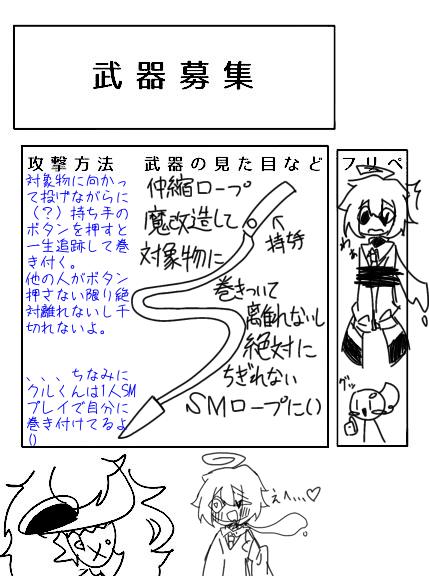 武器募集
攻撃方法
対象物に向かっ
て投げながらに
(?)持ち手の
ボタンを押すと
一生追跡して巻
き付く。
他の人がボタン
押さない限り絶
対離れないし千
切れないよ。
、、、ちなみに
クルくんは1人SM
プレイで自分に
巻き付けてるよ
()
武器の見た目など
伸縮ロープ
魔改造して
対象物に
↖
持ち手
巻きついて
離れないし
絶対に
ちぎれない
SMロープに()
フリペ
わぁ
グッ
えへ…♡